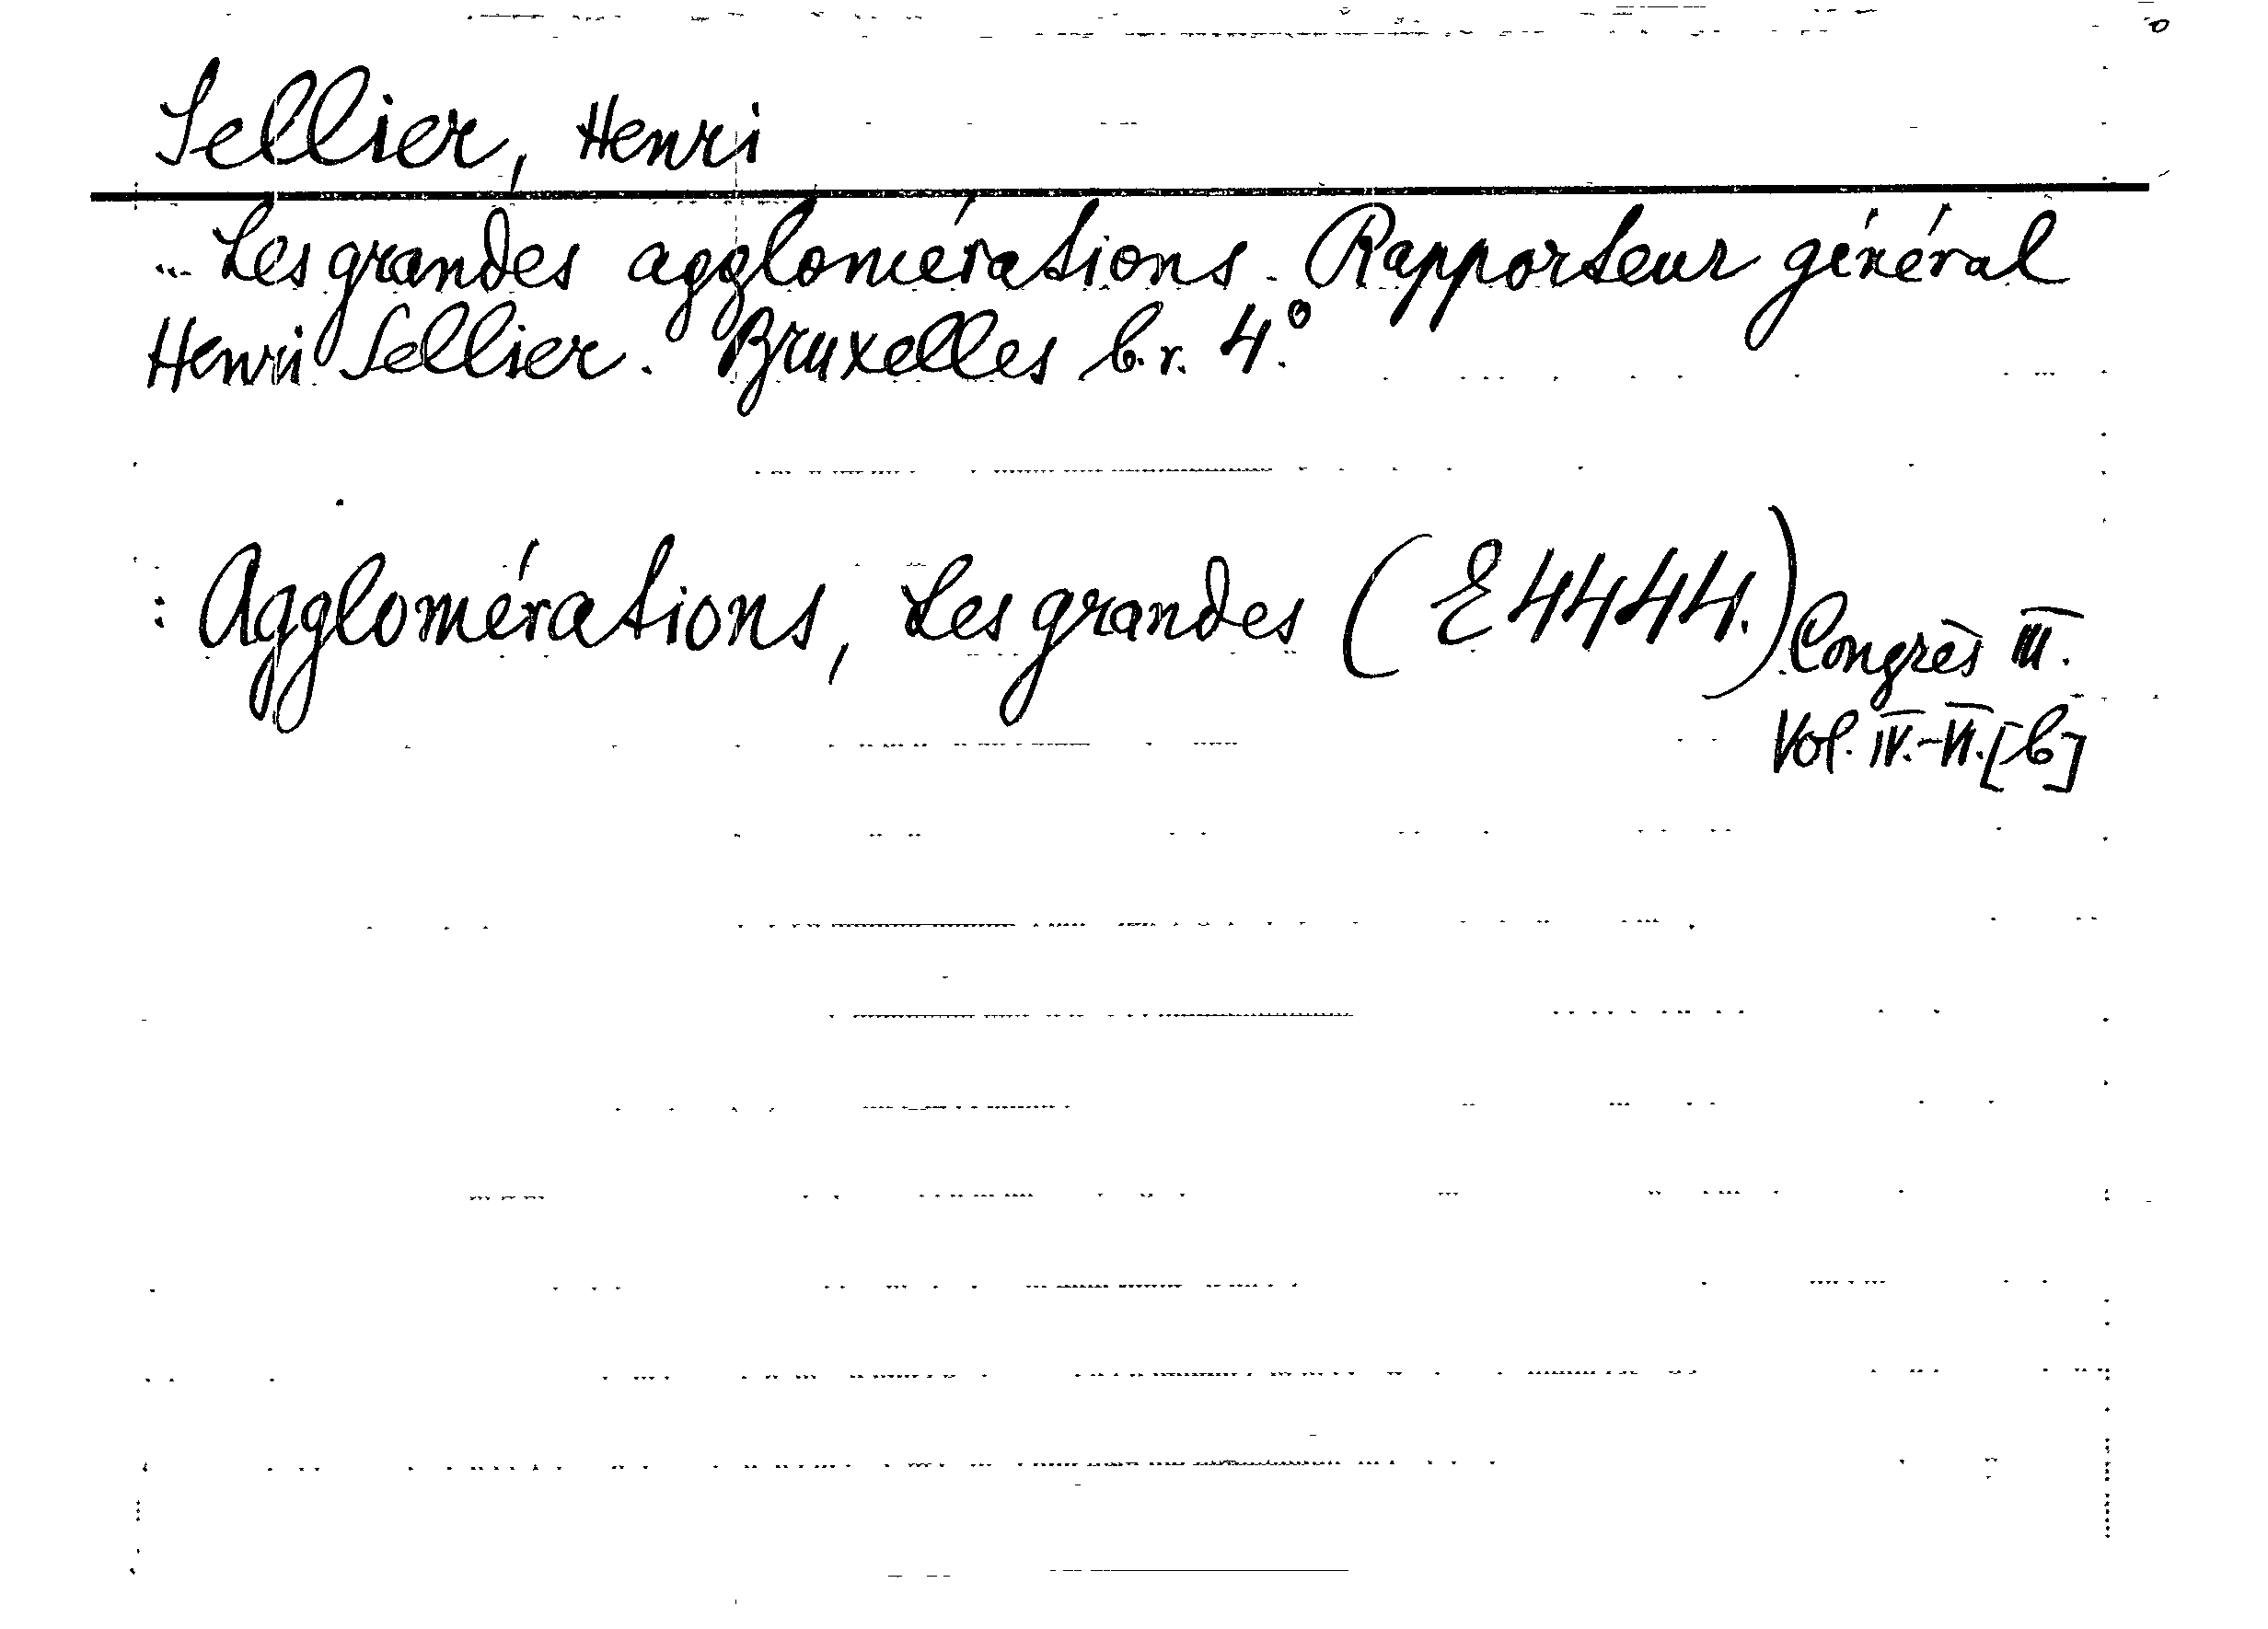 Sellier, Henri
Les grandes agglomérations. Rapporteur général
Henri Sellier. Bruxelles b.r. 4.°
Agglomérations, Les grandes (E 4444.) Congrès III.
Vol. IV.-VI. [b]